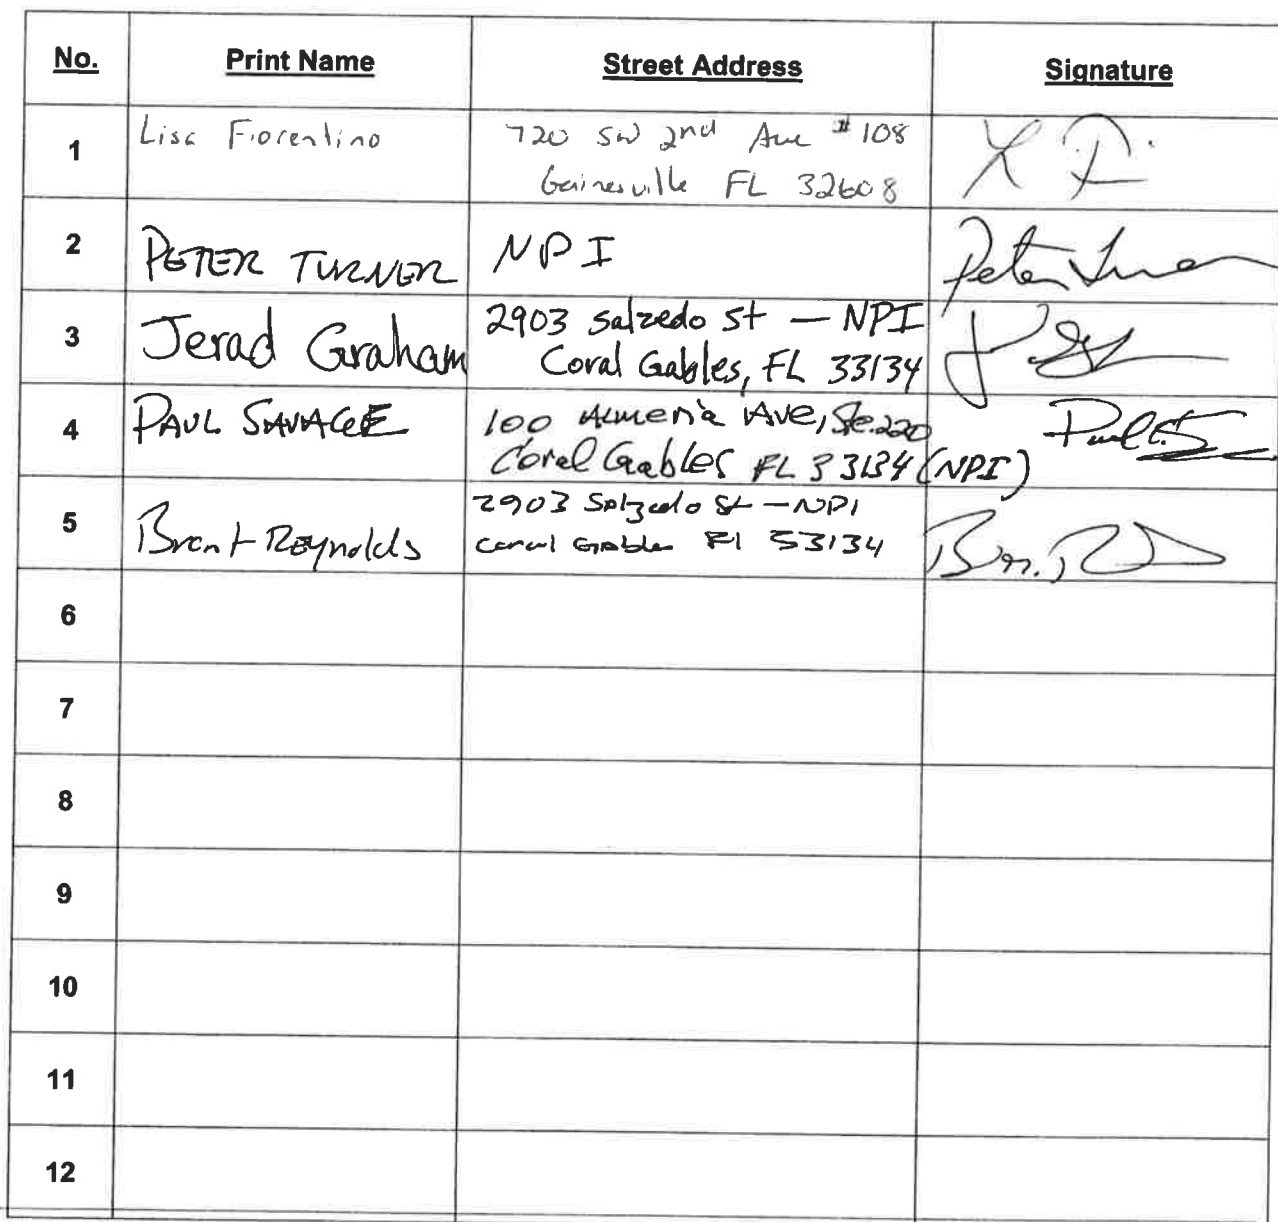 No. Print Name Street Address Signature
1 Lisa Fiorentino 720 SW 2nd Ave #108
Gainesville FL 32608
2 PETER TURNER NPI Peter Turner
3 Jerad Graham 2903 Salzedo St — NPI
Coral Gables, FL 33134
4 PAUL SAVAGE 100 Almeria Ave, Ste. 220
Coral Gables FL 33134 (NPI)
5 Brent Reynolds 2903 Salzedo St — NPI
Coral Gables Fl 33134
6
7
8
9
10
11
12